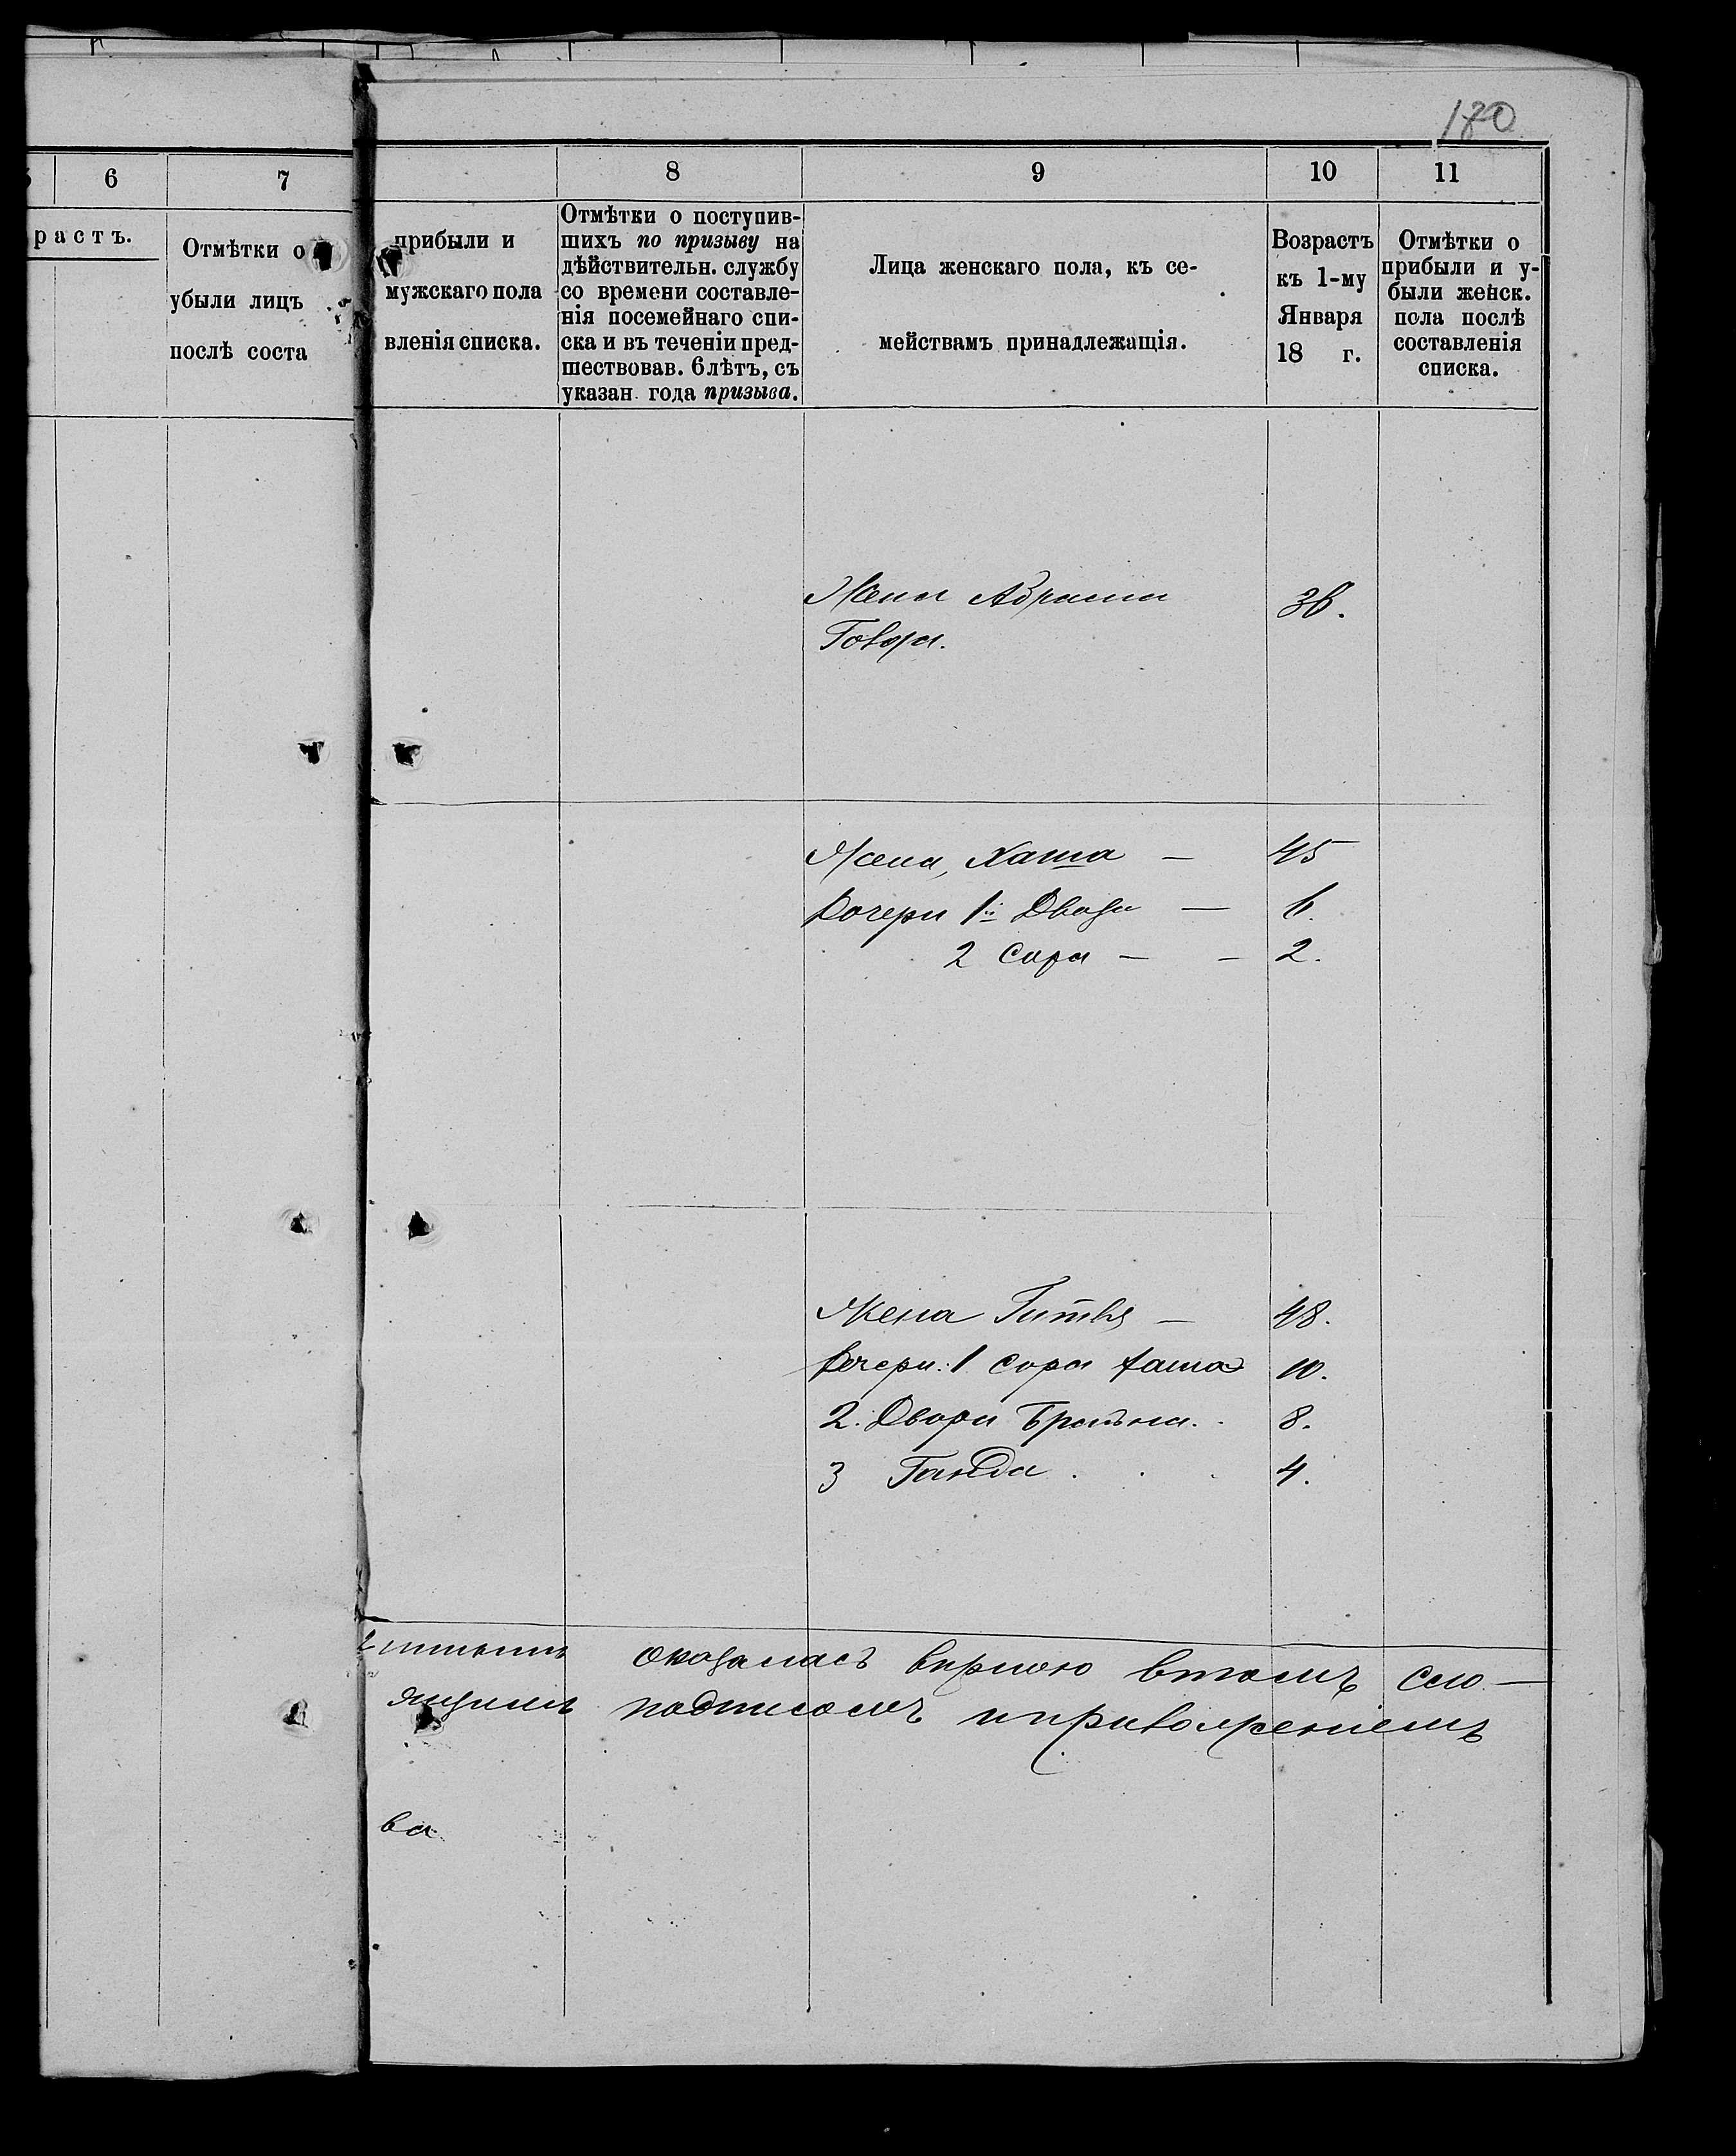 180
6 7 8 9 10 11
растъ.
Отмѣтки о прибыли и
убыли лицъ мужскаго пола
послѣ соста вленія списка.
Отмѣтки о поступив-
шихъ по призыву на
дѣйствительн. службу
со времени составле-
нія посемейнаго спи-
ска и въ теченіи пред-
шествовав. 6 лѣтъ, съ
указан. года призыва.
Лица женскаго пола, къ се-
мействамъ принадлежащія.
Возрастъ
къ 1-му
Января
18 г.
Отмѣтки о
прибыли и у-
были женск.
пола послѣ
составленія
списка.
Жена Абрама 36.
Жена, Хаша — 45
Дочери 1я Двора — 6.
2 Сора — — 2.
Жена Гитля — 48.
Дочери: 1 Сора Хаша 10.
2. Двора Брайна. 8.
3 Ганда 4.
оказалась вѣрною втомъ
подписомъ иприложеніемъ
ва